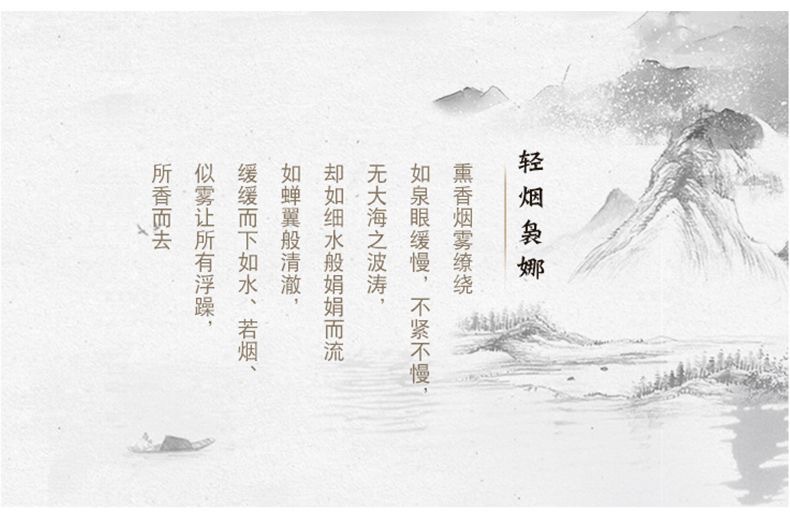 轻烟袅娜
熏香烟雾缭绕
如泉眼缓慢，不紧不慢，
无大海之波涛，
却如细水般娟娟而流
如蝉翼般清澈，
缓缓而下如水、若烟、
似雾让所有浮躁，
所香而去